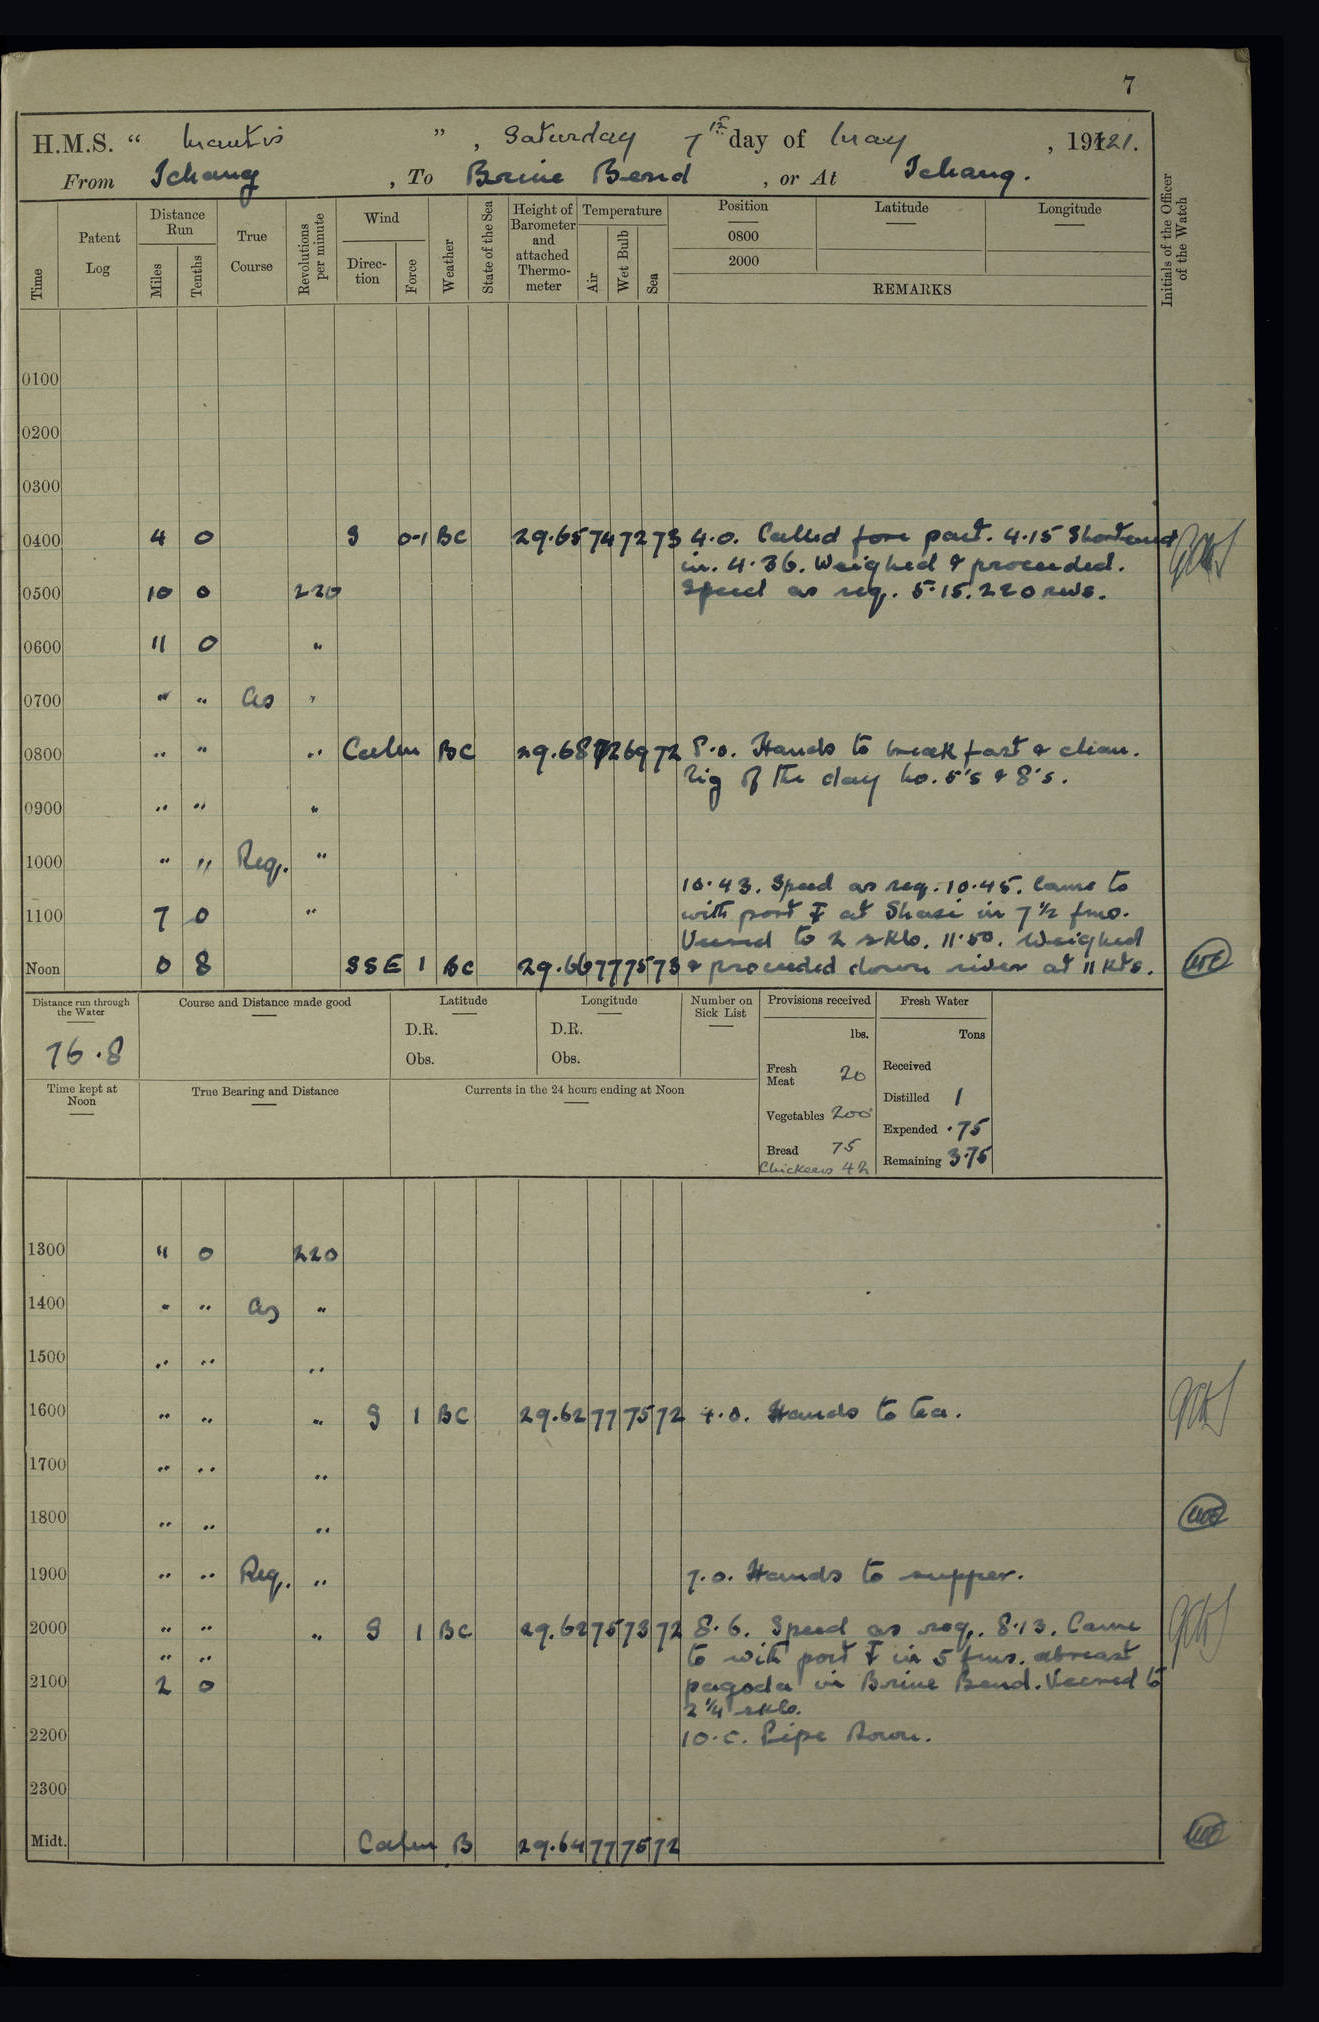 7
H.M.S. “ Mantis ”, Saturday 7th day of May, 1921.
From Ichang, To Brine Bend, or At Ichang.
Time Patent Log Distance Run Miles Tenths True Course Revolutions per minute Wind Direction Force Weather State of the Sea Height of Barometer and attached Thermometer Temperature Air Wet Bulb Sea Position Latitude Longitude Initials of the Officer of the Watch
0800
2000
REMARKS
0100
0200
0300
0400 4 0 S 0-1 BC 29.65 74 72 73 4.0. Called fore part. 4.15 Shortened
in. 4.36. Weighed & proceeded.
0500 10 0 220 Speed as req. 5.15. 220 revs.
0600 11 0 "
0700 " " as "
0800 " " " Calm BC 29.68 72 69 72 8.0. Hands to breakfast & clean.
Rig of the day No. 5's & 8's.
0900 " " "
1000 " " Req. "
10.43. Speed as req. 10.45. Came to
1100 7 0 " with port ⚓ at Shasi in 7½ fms.
Veered to 2 skls. 11.50. Weighed
Noon 0 8 SSE 1 BC 29.66 77 75 73 & proceeded down river at 11 kts.
Distance run through the Water Course and Distance made good Latitude Longitude Number on Sick List Provisions received Fresh Water
76.8 D.R. D.R. lbs. Tons
Obs. Obs. Fresh Meat 20 Received
Time kept at Noon True Bearing and Distance Currents in the 24 hours ending at Noon Distilled 1
Vegetables 200 Expended .75
Bread 75 Remaining 3.75
Chickens 42
1300 11 0 220
1400 " " as "
1500 " " "
1600 " " " S 1 BC 29.62 77 75 72 4.0. Hands to tea.
1700 " " "
1800 " " "
1900 " " Req. " 7.0. Hands to supper.
2000 " " " S 1 BC 29.62 75 73 72 8.6. Speed as req. 8.13. Came
" " to with port ⚓ in 5 fms. abreast
2100 2 0 pagoda in Brine Bend. Veered to
2¼ skls.
2200 10.0. Pipe Down.
2300
Midt. Calm B 29.64 77 75 72